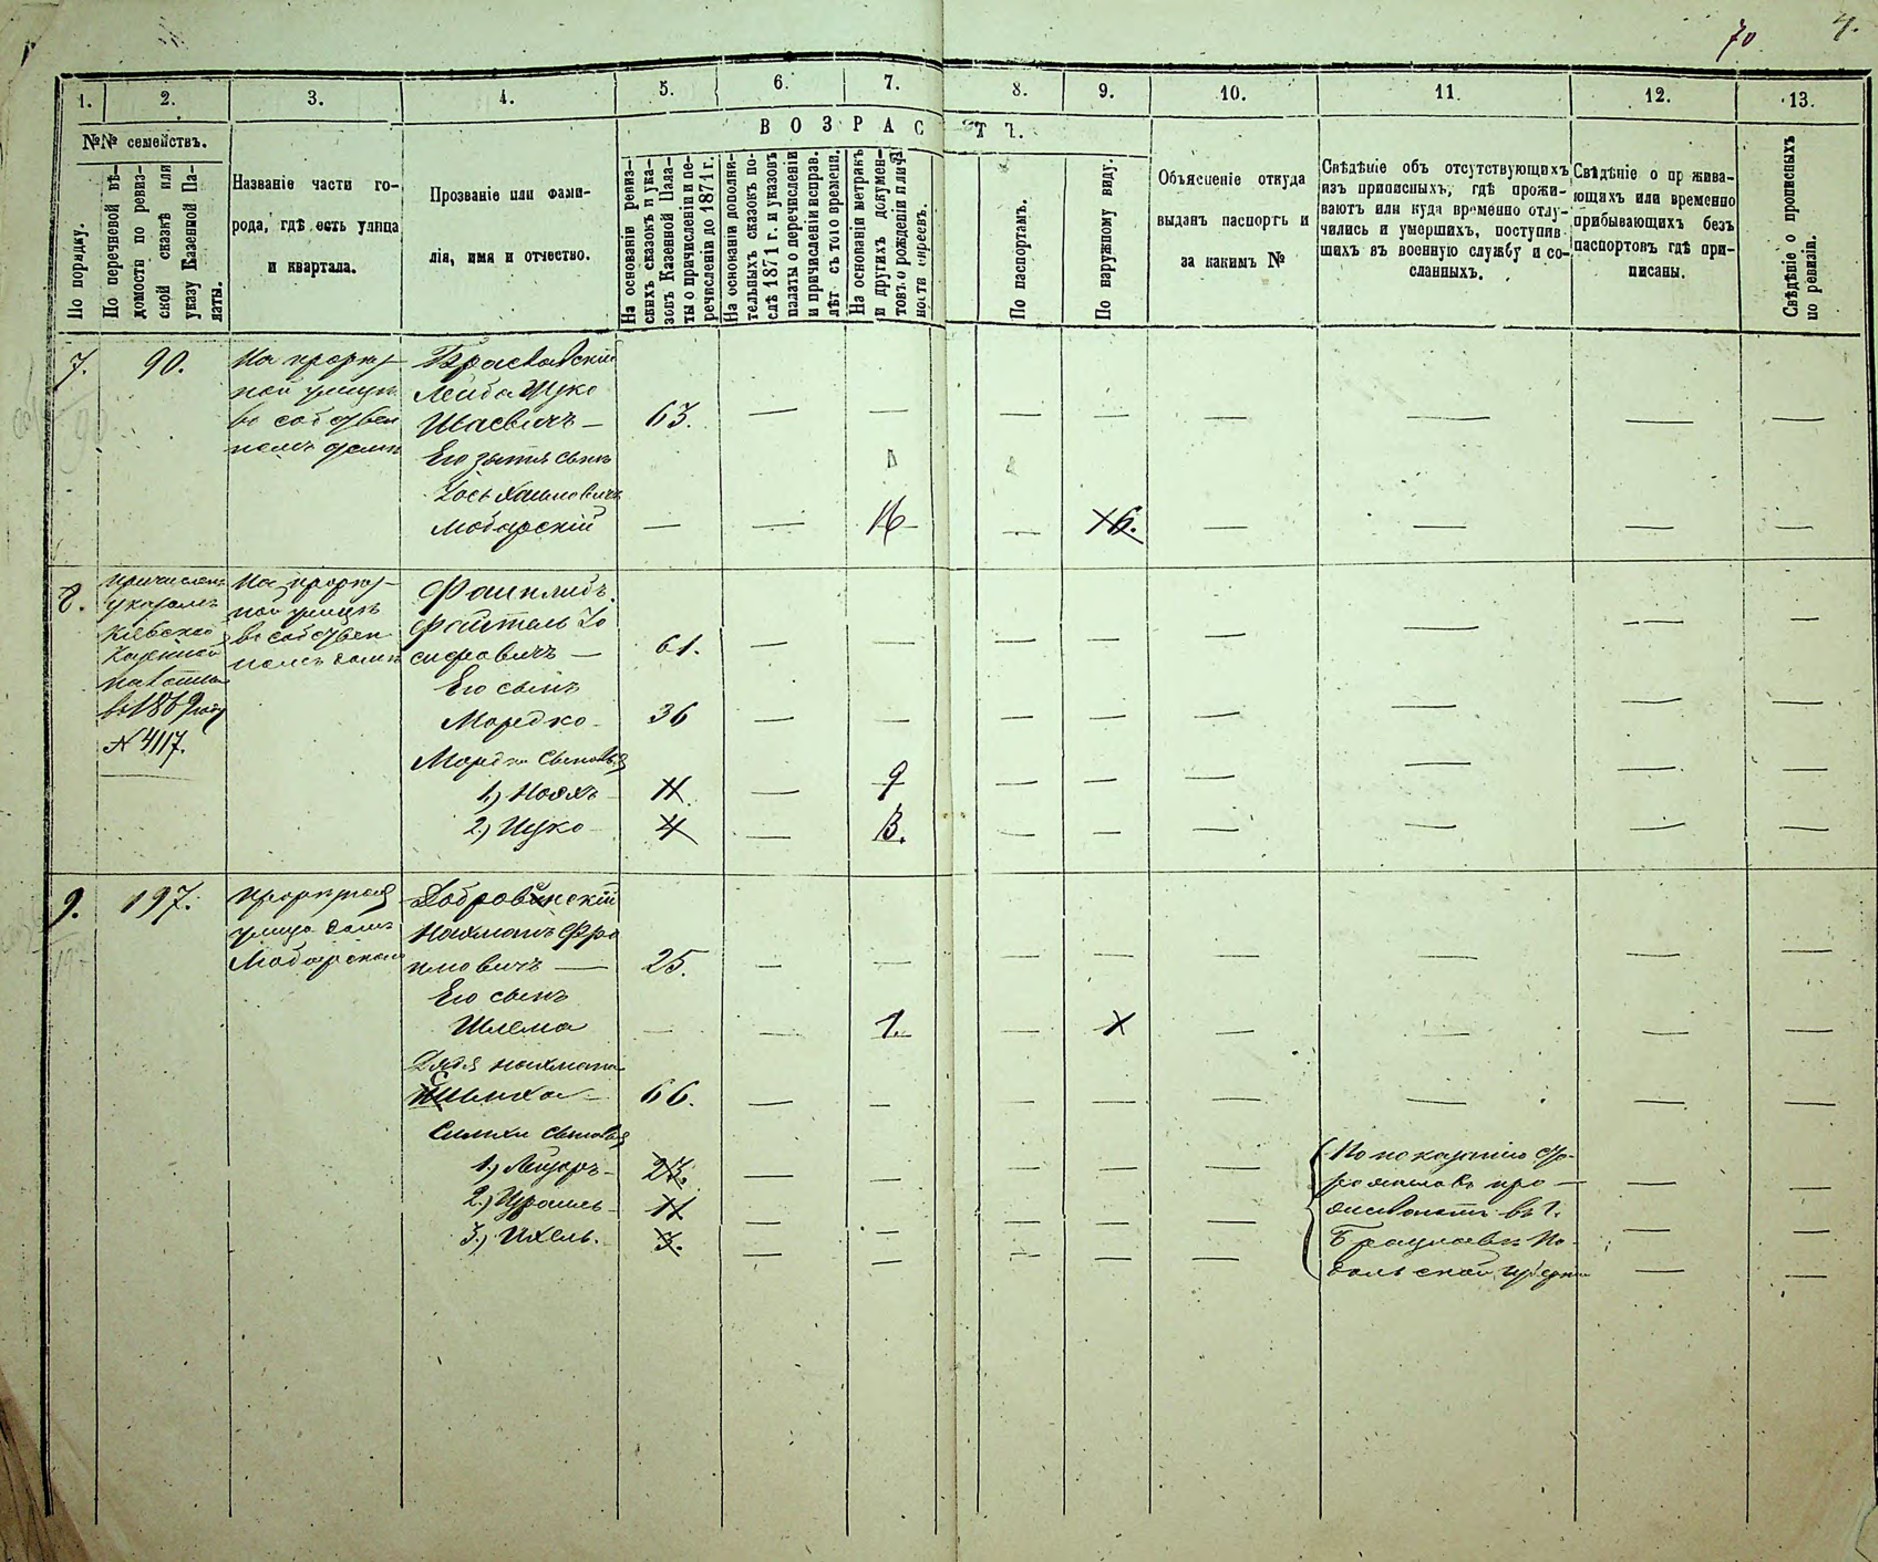 70
4.
1.
2.
3.
4.
5.
6.
7.
8.
9.
10.
11.
12.
13.
№№ семействъ.
ВОЗРАСТЪ.
По порядку.
По перечневой вѣ-
домости по ревиз-
ской сказкѣ или
указу Казенной Па-
латы.
Названіе части го-
рода, гдѣ есть улица
и квартала.
Прозваніе или фами-
лія, имя и отчество.
На основаніи ревиз-
скихъ сказокъ и ука-
зовъ Казенной Пала-
ты о причисленіи и пе-
речисленіи до 1871 г.
На основаніи дополни-
тельныхъ сказокъ по-
слѣ 1871 г. и указовъ
палаты о перечисленіи
и причисленіи исправ.
лѣт съ того времени.
На основаніи метрикъ
и другихъ докумен-
товъ о рожденіи и лич-
ности евреевъ.
По паспортамъ.
По наружному виду.
Объясненіе откуда
выданъ паспортъ и
за какимъ №
Свѣдѣніе объ отсутствующихъ
изъ приписныхъ, гдѣ прожи-
ваютъ или куда временно отлу-
чились и умершихъ, поступив-
шихъ въ военную службу и со-
сланныхъ.
Свѣдѣніе о пр жива-
ющихъ или временно
прибывающихъ безъ
паспортовъ гдѣ при-
писаны.
Свѣдѣніе о прописныхъ
по ревизіи.
7.
90.
На
ной улицѣ
въ собствен
номъ домѣ
Браславскій
Лейба Ицко
Шаевичъ — 63.
Его зятя сынъ
Іось Хаимовичъ
16
16.
8.
Причисленъ
указомъ
Кіевской
Казенной
Палаты
въ 1869 году
№ 4117.
На
ной улицѣ
въ собствен
номъ домѣ
Файтель Іо
сифовичъ — 61.
Его сынъ
Мордко 36
Мордки сыновья
1.) Нояхъ 11. 9
2.) Ицко 4 3.
9.
197.
улица домъ
Добровинскій
Нахманъ Фро
имовичъ — 25.
Его сынъ
Шлема 1. 1
Дядя Нахмана
Симха 66.
Симхи сыновья
1.) Лейзоръ 23.
2.) Израиль 11
3.) Ихель. 3.
По показанію
проживаютъ въ г.
Брацлавѣ По-
дольской губерніи